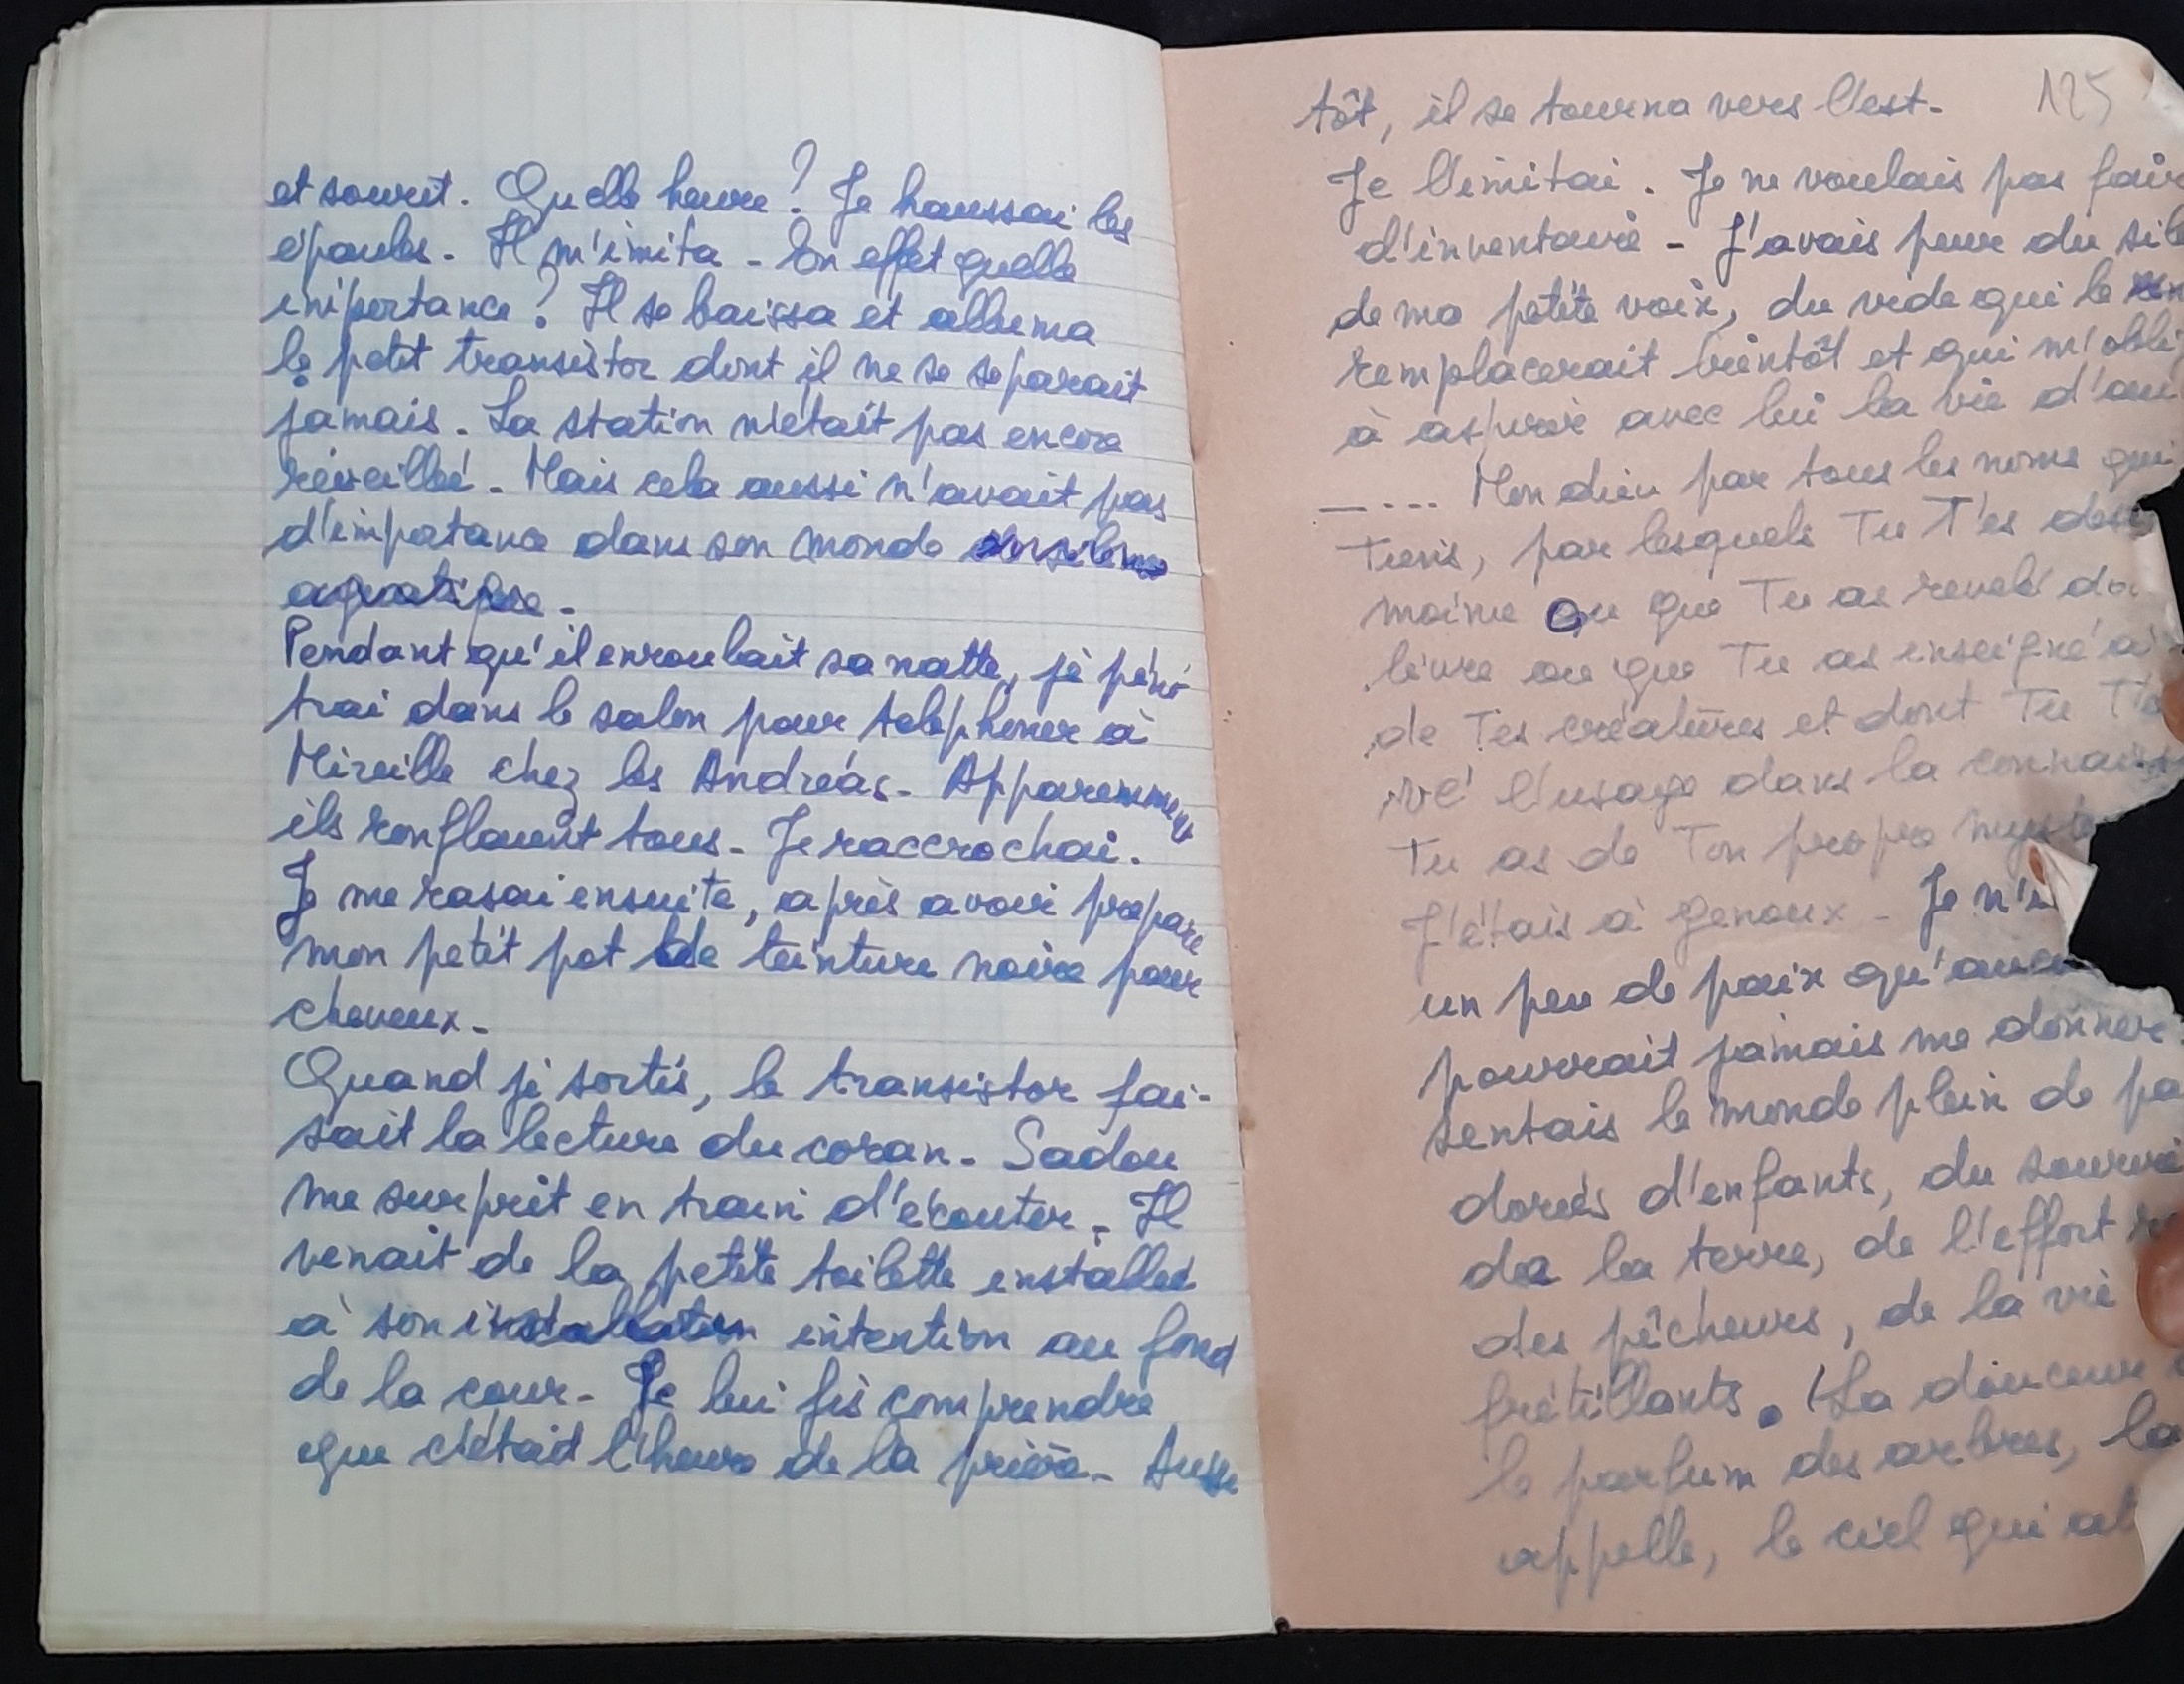 et sourit. Quelle heure ? Je haussai les
épaules. Il m'imita. En effet quelle
importance ? Il se baissa et alluma
le petit transistor dont il ne se séparait
jamais. La station n'était pas encore
réveillée. Mais cela aussi n'avait pas
d'importance dans son monde
aquatique.
Pendant qu'il enroulait sa natte, je péné
trai dans le salon pour telephoner à
Mireille chez les Andréas. Apparemment
ils ronflaient tous. Je raccrochai.
Je me rasai ensuite, après avoir préparé
mon petit pot de teinture noire pour
cheveux.
Quand je sortis, le transistor fai-
sait la lecture du coran. Sadou
me surprit en train d'écouter. Il
venait de la petite toilette installée
à son installation intention au fond
de la cour. Je lui fis comprendre
que c'était l'heure de la prière. Aussi
125
tôt, il se tourna vers l'est.
Je l'imitai. Je ne voulais pas fair
d'inventaire - J'avais peur du sil
de ma petite voix, du vide qui le
remplacerait bientôt et qui m'obli
à aspirer avec lui la vie d'au
..... Mon dieu par tous les noms qui
Tiens, par lesquels Tu T'es
moime ou que Tu as revelé da
livre ou que Tu as enseigné à
de Tes créatures et dont Tu T'es
rvé l'usage dans la connaiss
Tu as de Ton propre mystè
J'étais à genoux - Je n'
un peu de paix qu'aucu
pourrait jamais me donner.
sentais le monde plein de pa
dorés d'enfants, du sourir
de la terre, de l'effort
des pêcheurs, de la vie
frétillants. (La douceur
le parfum des arbres, la
appelle, le ciel qui